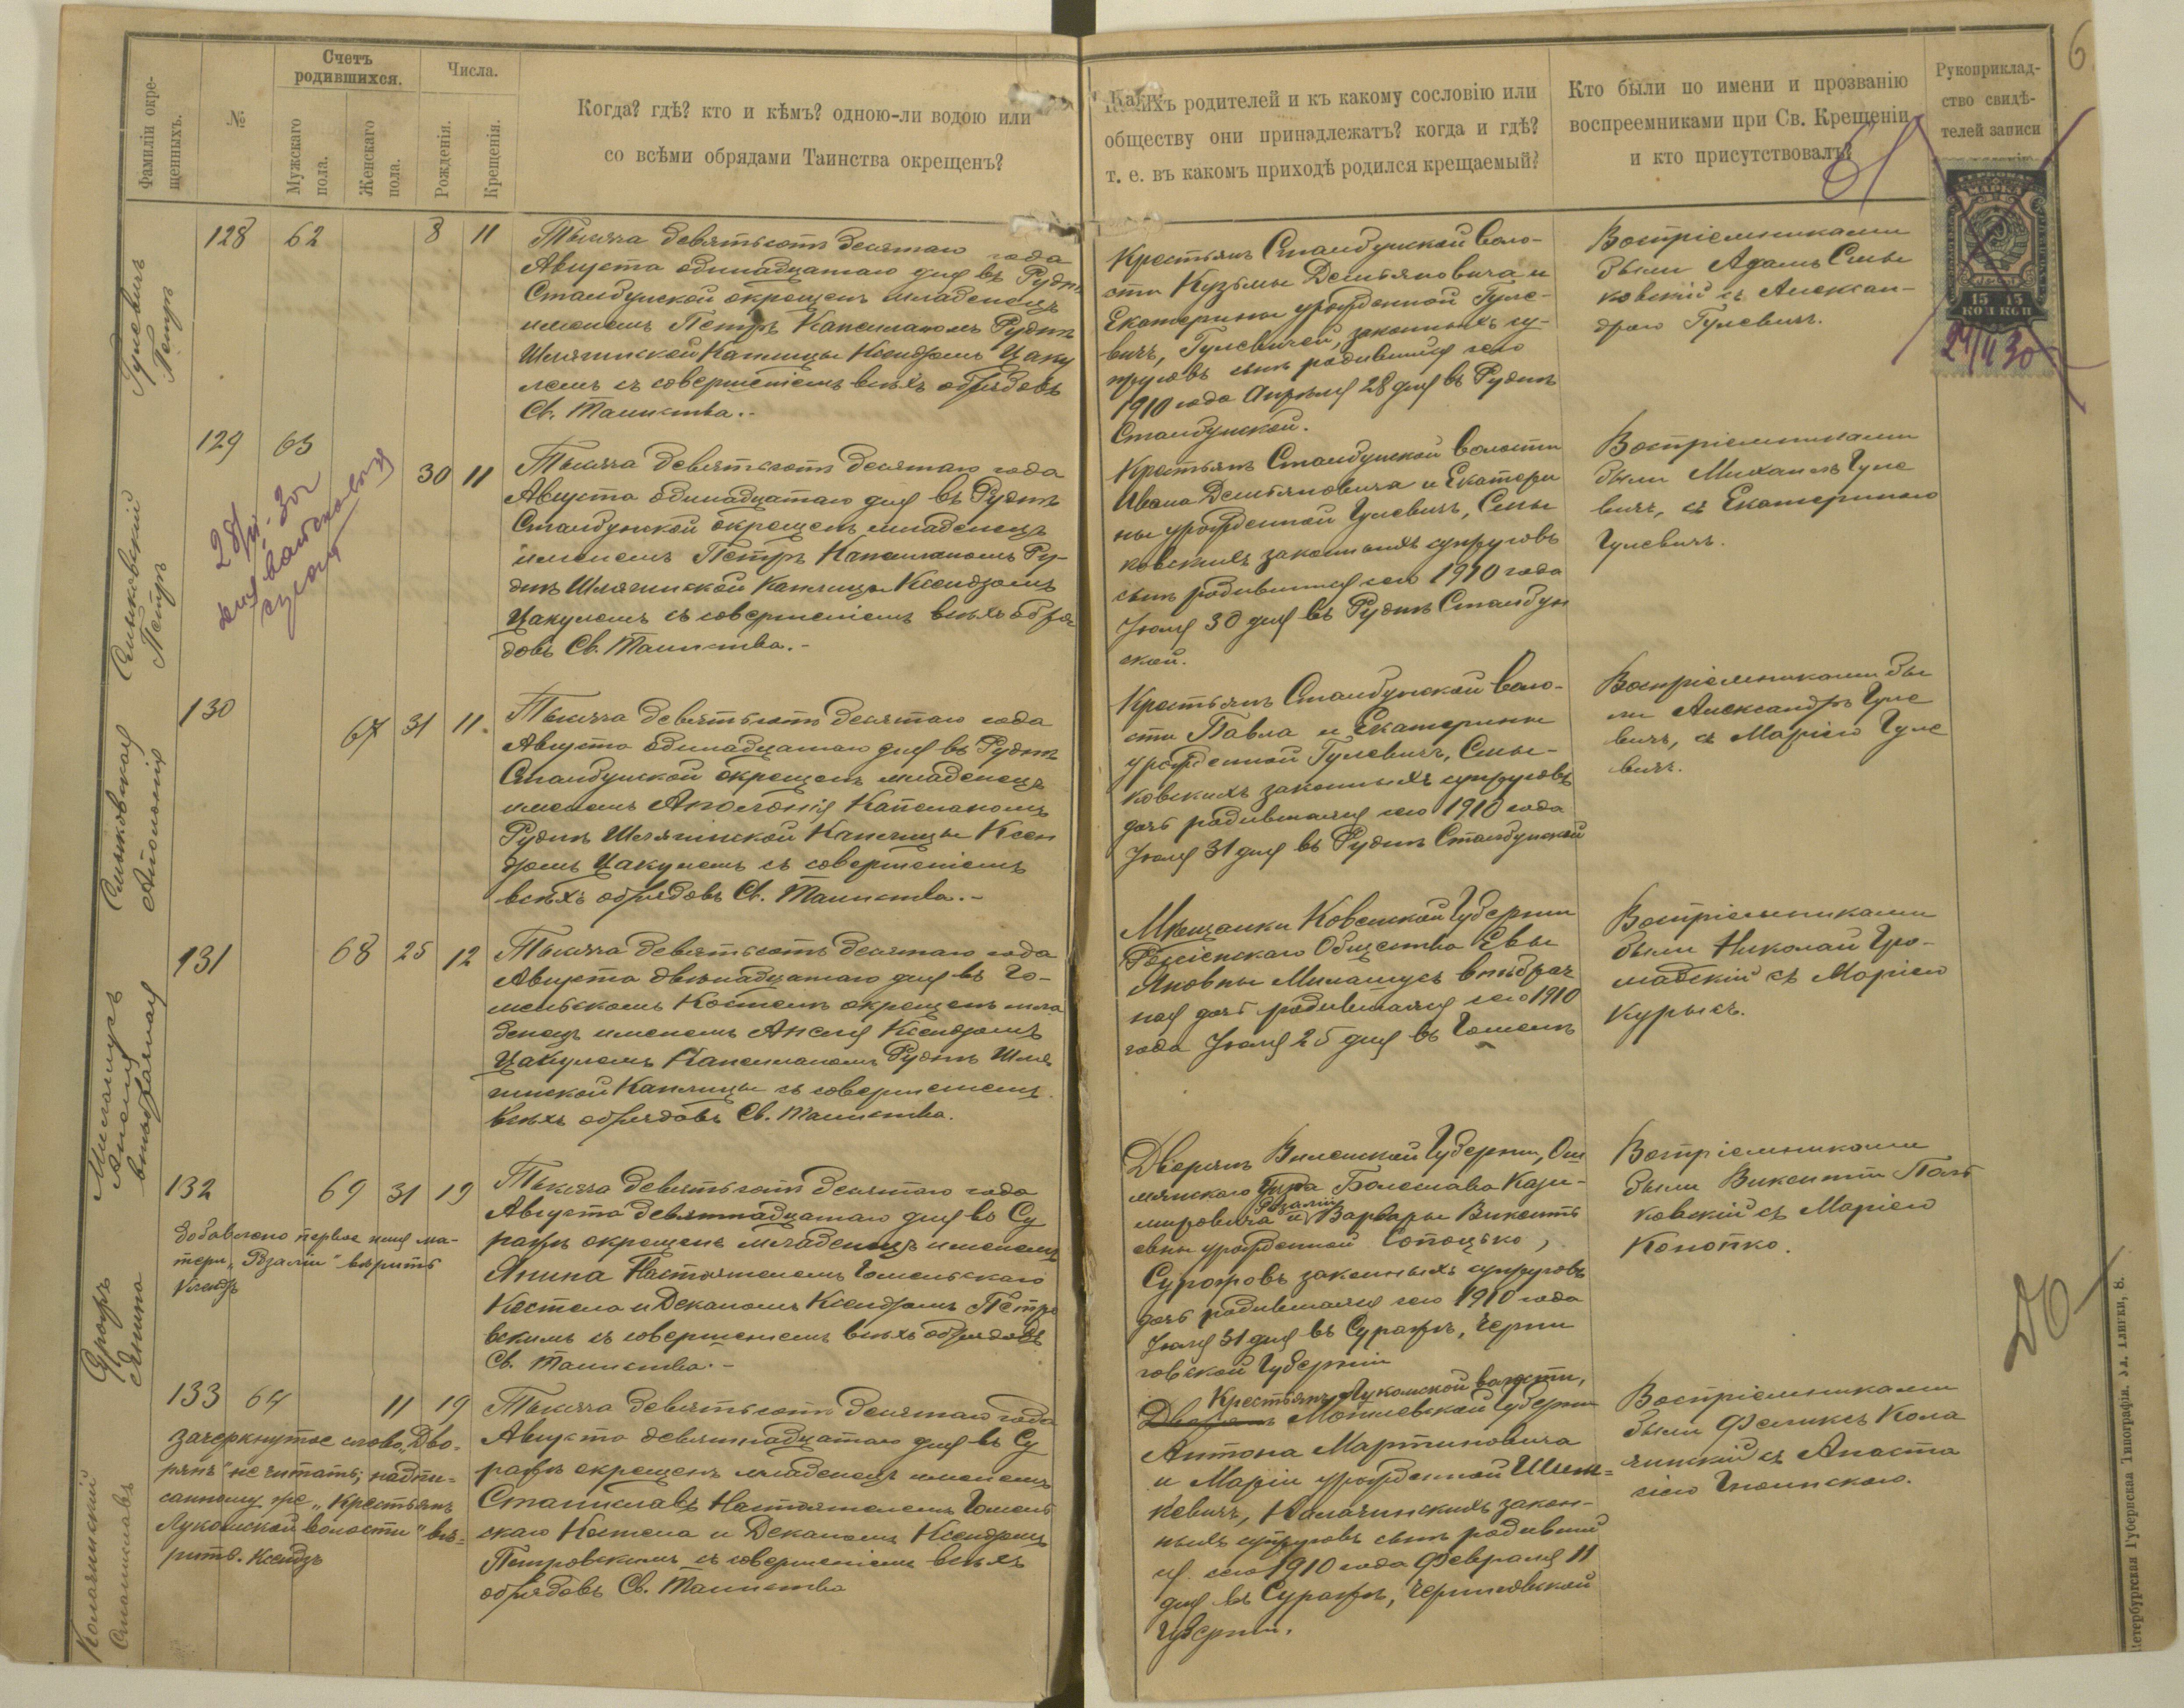 6
Фамиліи окре-
щенныхъ.
№
Счетъ
родившихся.
Мужскаго
пола.
Женскаго
пола.
Числа.
Рожденія.
Крещенія.
Когда? гдѣ? кто и кѣмъ? одною-ли водою или
со всѣми обрядами Таинства окрещенъ?
Какихъ родителей и къ какому сословію или
обществу они принадлежатъ? когда и гдѣ?
т. е. въ какомъ приходѣ родился крещаемый?
Кто были по имени и прозванію
воспреемниками при Св. Крещеніи
и кто присутствовалъ?
Рукоприклад-
ство свидѣ-
телей записи
ГЕРБОВАЯ
МАРКА
15 15
КОП КОП
24/II 30
Гулевичъ
Петръ
128 62 8 11
Тысяча девятьсотъ десятаго года
Августа одинадцатаго дня въ Руднѣ
Столбунской окрещенъ младенецъ
именемъ Петръ Капеланомъ Руднѣ
Шлягинской Каплицы Ксендзомъ Цаку
лемъ съ совершеніемъ всѣхъ обрядовъ
Св. Таинства.-
Крестьянъ Столбунской воло-
сти Кузьмы Демьяновича и
Екатерины урожденной Гуле-
вичъ, Гулевичей, законныхъ су-
пруговъ сынъ родившійся сего
1910 года Апрѣля 28 дня въ Руднѣ
Столбунской.
Воспріемниками
были Адамъ Смы
ковскій съ Алексан-
дрою Гулевичъ.
Смыковскій
Петръ
129 63 30 11
28/II-30г
Тысяча девятьсотъ десятаго года
Августа одинадцатаго дня въ Руднѣ
Столбунской окрещенъ младенецъ
именемъ Петръ Капеланомъ Ру-
днѣ Шлягинской Каплицы Ксендзомъ
Цакулемъ съ совершеніемъ всѣхъ обря
довъ Св. Таинства.-
Крестьянъ Столбунской волости
Ивана Демьяновича и Екатери
ны урожденной Гулевичъ, Смы
ковскихъ законныхъ супруговъ
сынъ родившійся сего 1910 года
Іюля 30 дня въ Руднѣ Столбун
ской.
Воспріемниками
были Михаилъ Гуле
вичъ, съ Екатериною
Гулевичъ.
Смыковская
Аполонія
130 67 31 11
Тысяча девятьсотъ десятаго года
Августа одинадцатаго дня въ Руднѣ
Столбунской окрещенъ младенецъ
именемъ Аполонія Капеланомъ
Руднѣ Шлягинской Каплицы Ксен
дзомъ Цакулемъ съ совершеніемъ
всѣхъ обрядовъ Св. Таинства.-
Крестьянъ Столбунской воло-
сти Павла и Екатерины
урожденной Гулевичъ, Смы-
ковскихъ законныхъ супруговъ
дочь родившаяся сего 1910 года
Іюля 31 дня въ Руднѣ Столбунской
Воспріемниками бы
ли Александръ Гуле
вичъ, съ Маріею Гуле
вичъ.
Анеля
внѣбрачная
131 68 25 12
Тысяча девятьсотъ десятаго года
Августа двѣнадцатаго дня въ Го-
мельскомъ Костелѣ окрещенъ мла
денецъ именемъ Анеля Ксендзомъ
Цакулемъ Капеланомъ Руднѣ Шля
гинской Каплицы съ совершеніемъ
всѣхъ обрядовъ Св. Таинства.
Мѣщанки Ковенской Губерніи
Общества Евы
Яновны внѣбрач
ная дочь родившаяся сего 1910
года Іюля 25 дня въ Гомелѣ
Воспріемниками
были Николай Гро-
мадскій съ Маріею
Курысъ.
Янина
132 69 31 19
добавлено первое имя ма-
тери „Розаліи" вѣрить
Ксендзъ
Тысяча девятьсотъ десятаго года
Августа девятнадцатаго дня въ Су
ражѣ окрещенъ младенецъ именемъ
Янина Настоятелемъ Гомельскаго
Костела и Деканомъ Ксендзомъ Петро
вскимъ съ совершеніемъ всѣхъ обрядовъ
Св. Таинства.-
Дворянъ Виленской Губерніи, Ош
мянскаго уѣзда Болеслава Кази-
мировича и Розаліи Варвары Викенть
евны урожденной Сопоцько,
законныхъ супруговъ
дочь родившаяся сего 1910 года
Іюля 31 дня въ Суражѣ, Черни
говской Губерніи
Воспріемниками
были Викентій
съ Маріею
Конопко.
Колачинскій
Станиславъ
133 64 11 19
зачеркнутое слово „Дво-
рянъ" не читать; надпи-
санному же „Крестьянъ
Лукомской волости" вѣ-
рить. Ксендзъ
Тысяча девятьсотъ десятаго года
Августа девятнадцатаго дня въ Су
ражѣ окрещенъ младенецъ именемъ
Станиславъ Настоятелемъ Гомель
скаго Костела и Деканомъ Ксендзомъ
Петровскимъ съ совершеніемъ всѣхъ
обрядовъ Св. Таинства
Крестьянъ Лукомской волости,
Дворянъ Могилевской Губерніи
Антона Мартиновича
и Маріи урожденной
Колачинскихъ закон-
ныхъ супруговъ сынъ родивший
ся сего 1910 года Февраля 11
дня въ Суражѣ, Черниговской
Губерніи.
Воспріемниками
были Феликсъ Кола
чинскій съ Анаста
сіею
етербургская Губернская Типографія.